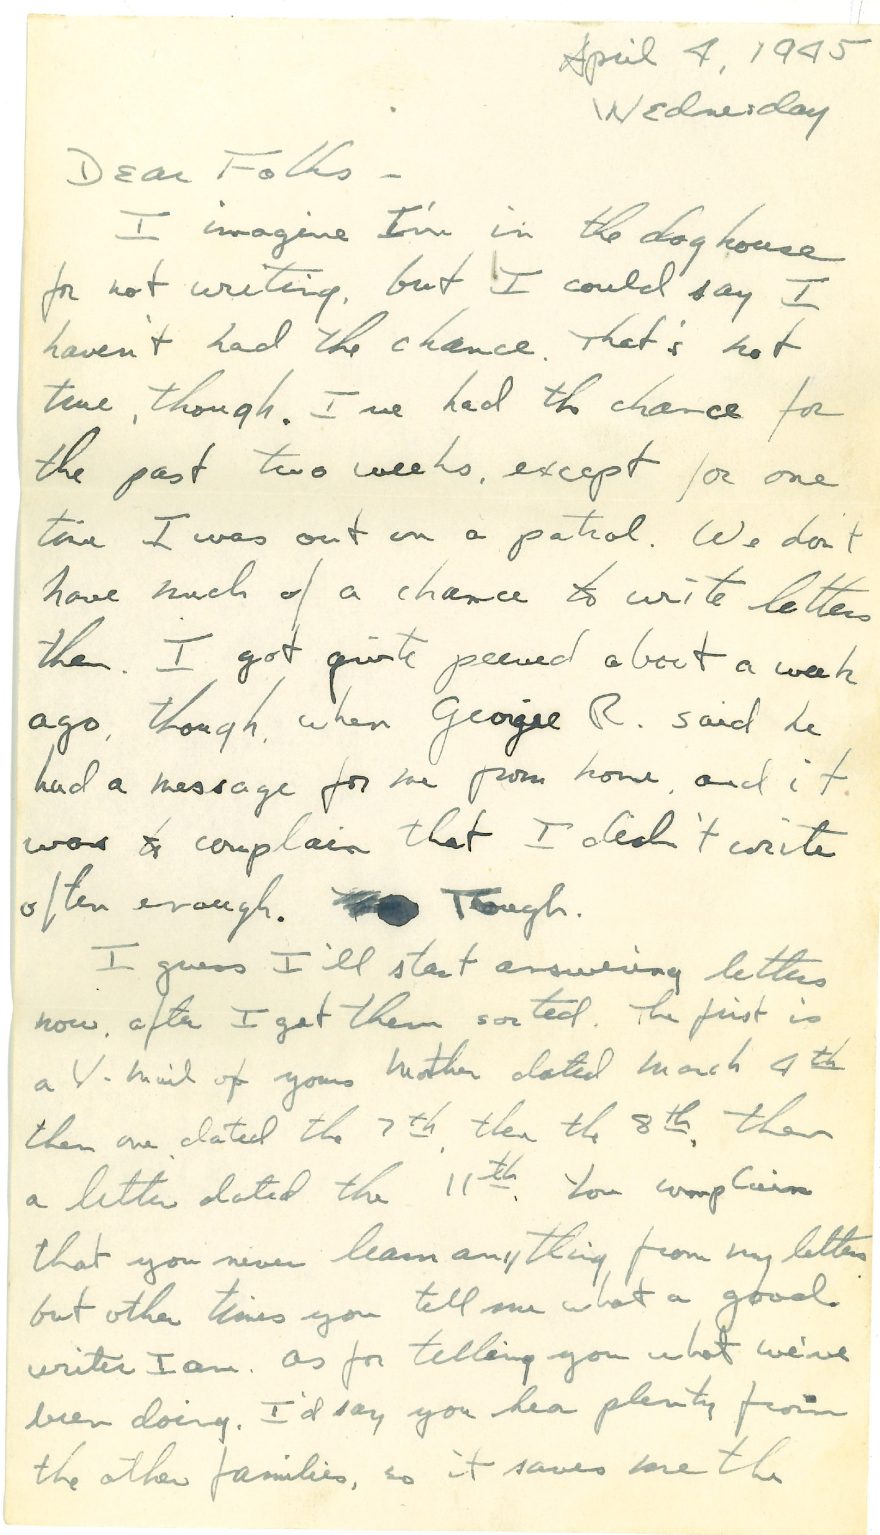 April 4, 1945
Wednesday
Dear Folks -
I imagine I'm in the doghouse
for not writing, but I could say I
haven't had the chance. That's not
true, though. I've had the chance for
the past two weeks, except for one
time I was out on a patrol. We don't
have much of a chance to write letters
then. I got quite peeved about a week
ago, though, when George R. said he
had a message for me from home, and it
was to complain that I didn't write
often enough. Tough.
I guess I'll start answering letters
now, after I get them sorted. The first is
a V-mail of yours Mother dated March 4th
then one dated the 7th, then the 8th, then
a letter dated the 11th. You complain
that you never learn anything from my letters
but other times you tell me what a good
writer I am. As for telling you what we've
been doing, I'd say you hear plenty from
the other families, so it saves me the